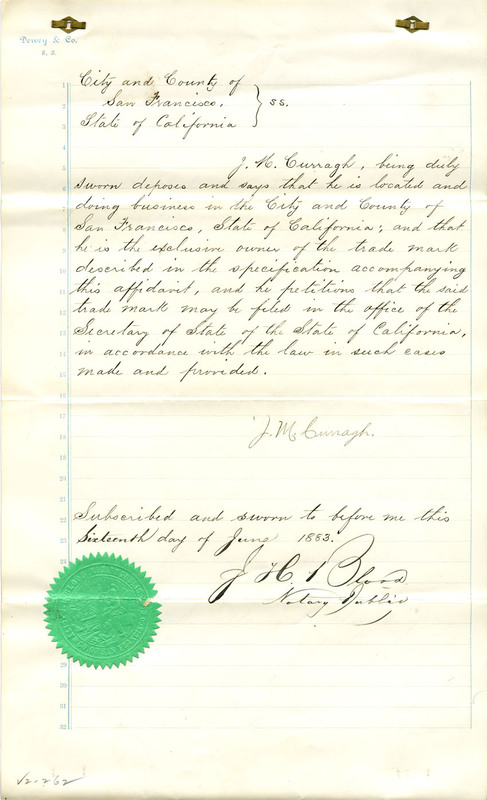 Dewey & Co.
S. F.
City and County of
San Francisco, } ss.
State of California
J. M. Curragh, being duly
sworn deposes and says that he is located and
doing business in the City and County of
San Francisco, State of California; and that
he is the exclusive owner of the trade mark
described in the specification accompanying
this affidavit, and he petitions that the said
trade mark may be filed in the office of the
Secretary of State of the State of California,
in accordance with the law in such cases
made and provided.
J. M. Curragh.
Subscribed and sworn to before me this
Sixteenth day of June 1883.
J H Blood
Notary Public